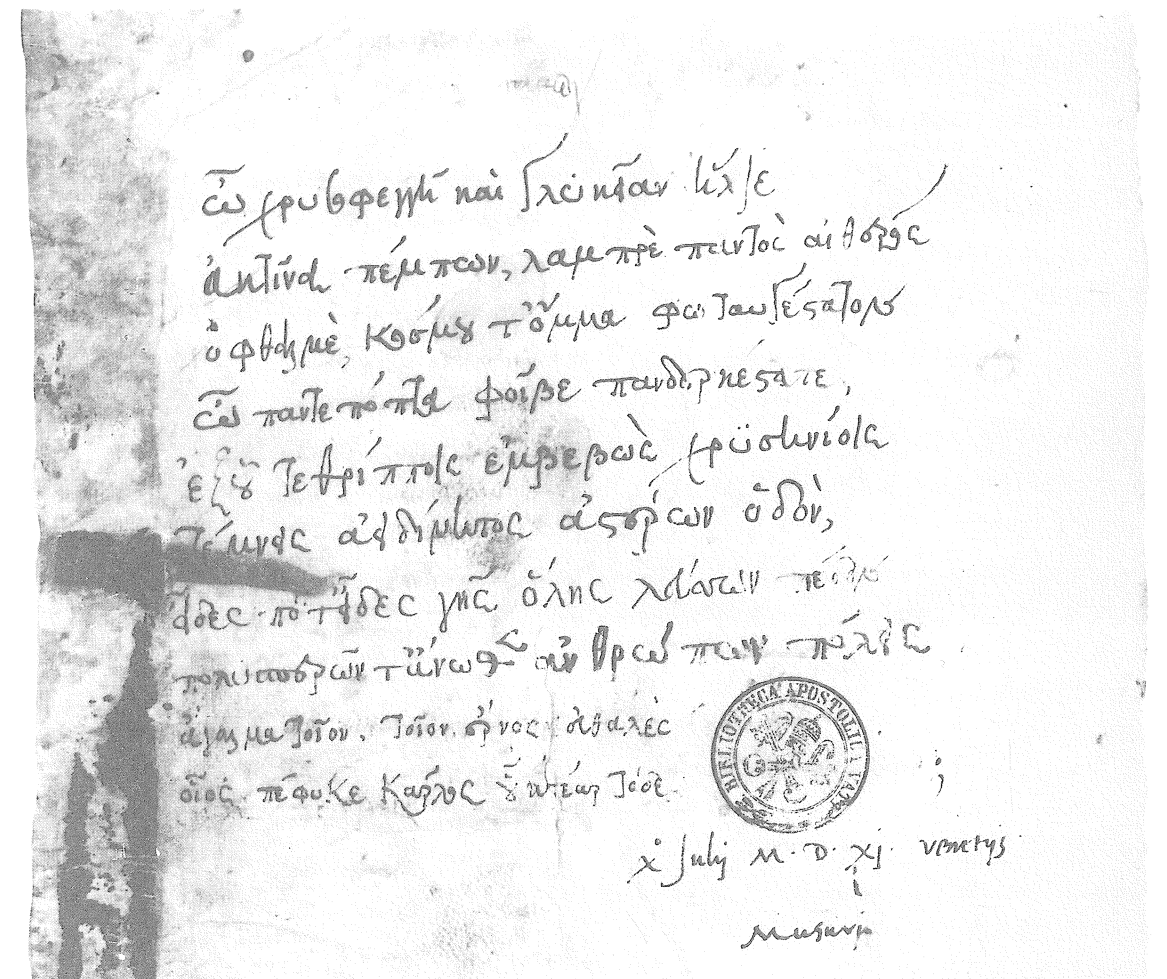 ὦ χρυσοφεγγῆ καὶ γλυκεῖαν ἥλιε
ἀκτῖνα πέμπων, λαμπρὲ παντὸς αἰθέρος
ὀφθαλμὲ, κόσμου τ' ὄμμα φωταυγέστατον
ὦ παντεπόπτα φοῖβε πανδερκέστατε,
ἐξ οὗ τεθρίπποις ἐμβεβὼς χρυσηνίοις
τέμνεις ἀειδίνητος ἀστέρων ὁδὸν,
εἶδες ποτ' εἶδες γῆς ὅλης
πολυσπερῶν τ' ἄνωθεν ἀνθρώπων πόλεις
ἄγαλμα τοῖον, τοῖον ἔρνος ἀειθαλὲς
οἷος πέφυκε Κάρλος οὗ κτέαρ τόδε
BIBLIOTHECA APOSTOLICA VATICANA
x Julij M.D.xj. venetijs